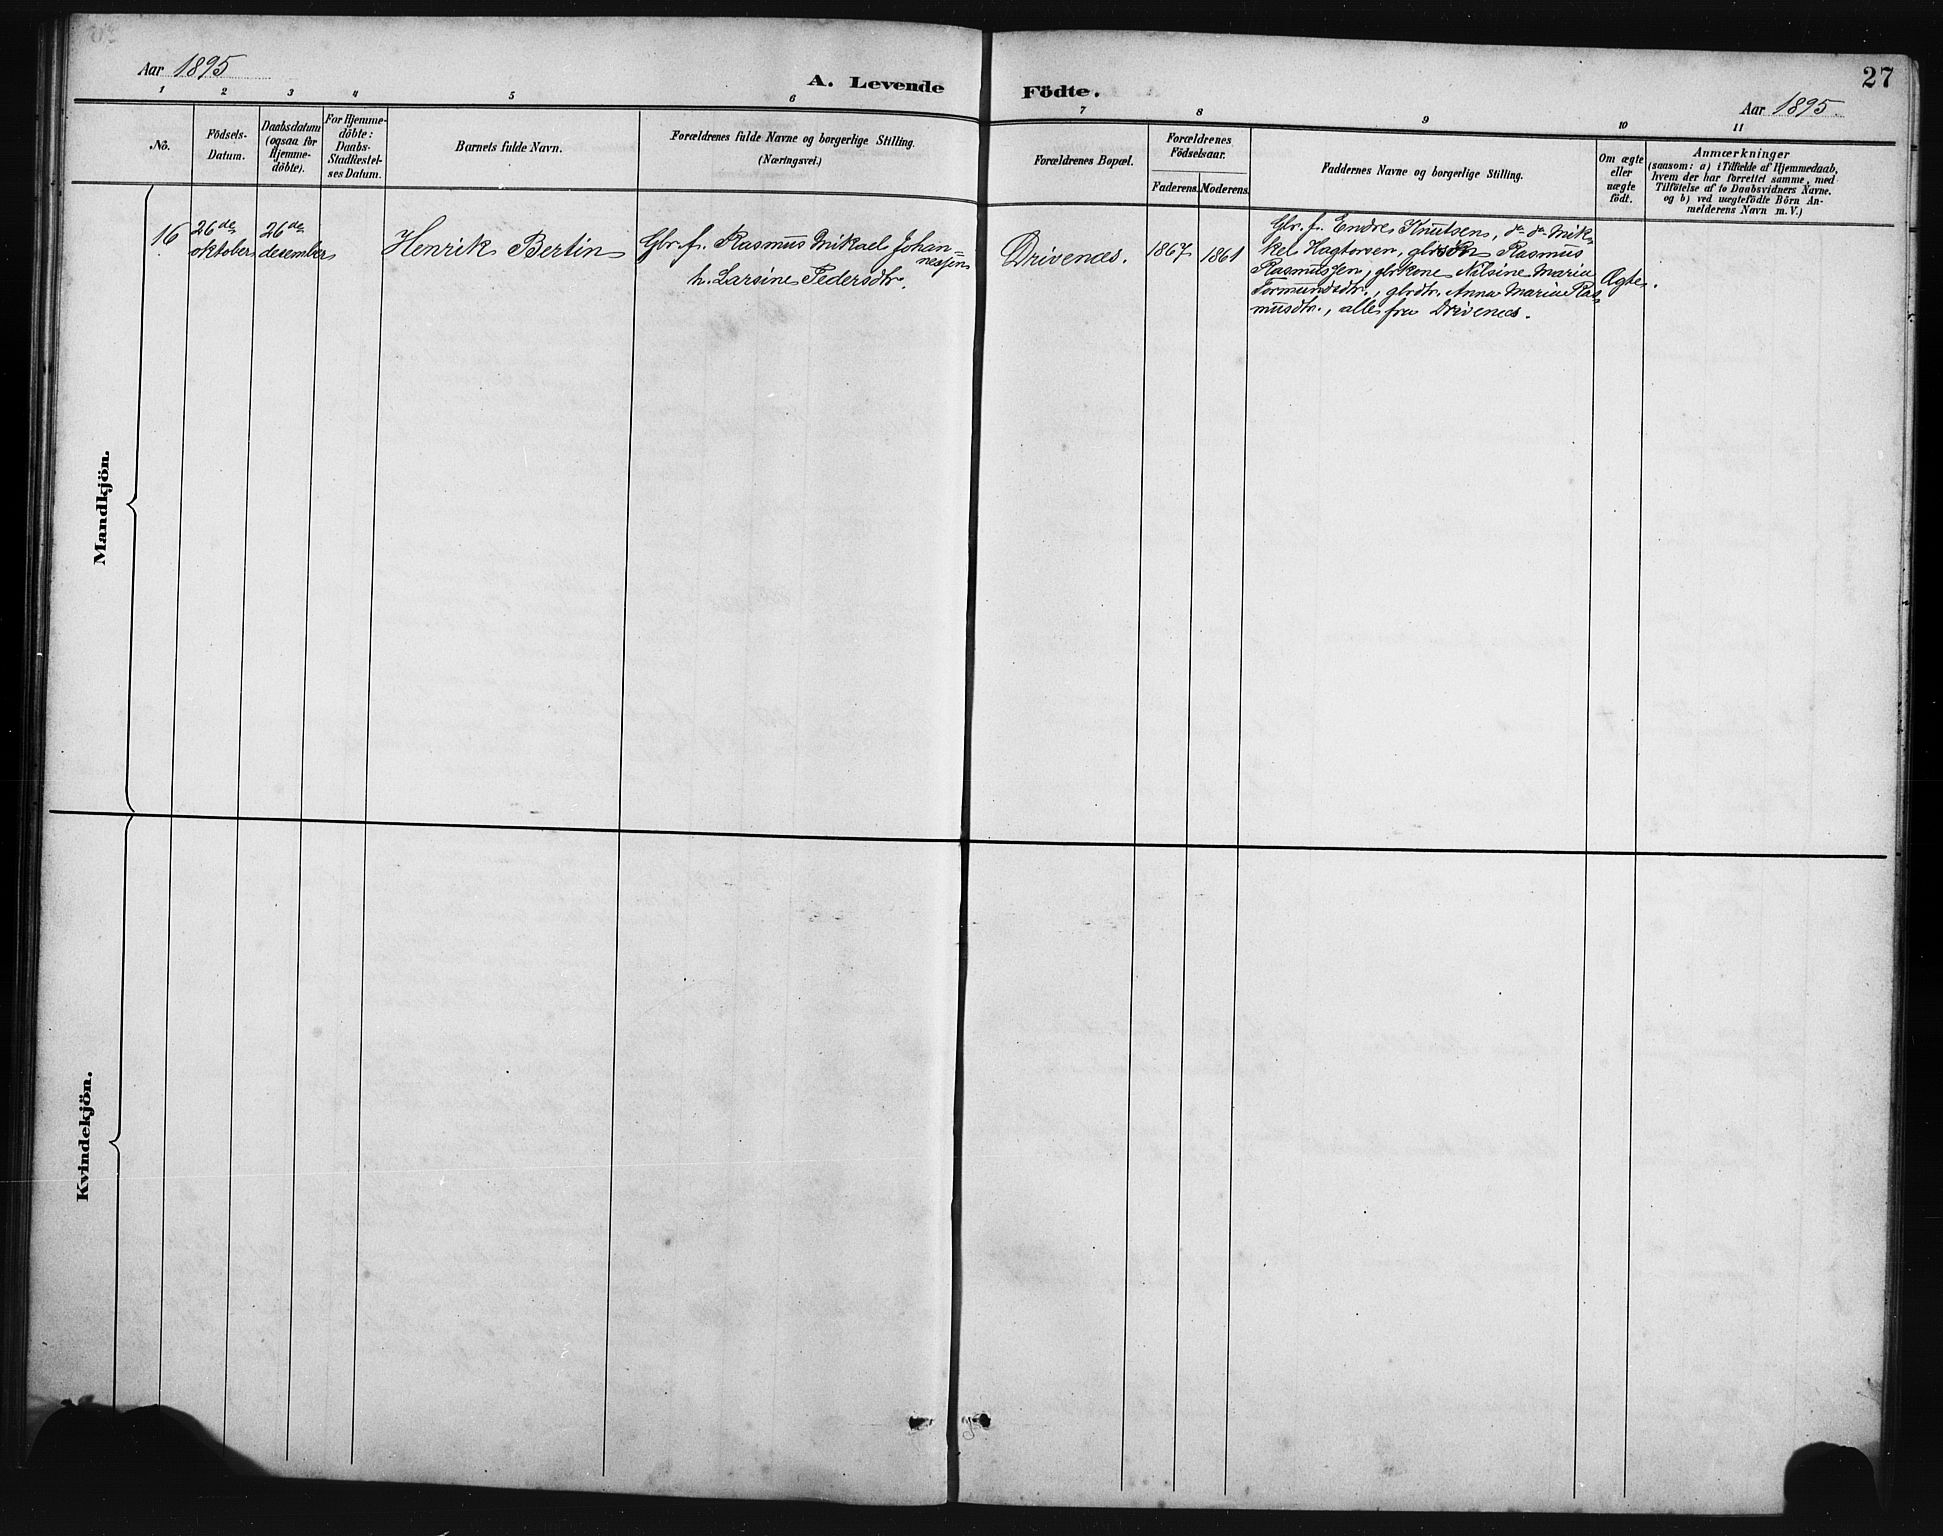 27
Aar 1895
A. Levende Födte.
Aar 1895.
1 2 3 4 5 6 7 8 9 10 11
No.
Födsels-
Datum.
Daabsdatum
(ogsaa for
Hjemme-
döbte).
For Hjemme-
döbte:
Daabs-
Stadfæstel-
ses Datum.
Barnets fulde Navn.
Forældrenes fulde Navne og borgerlige Stilling.
(Næringsvei.)
Forældrenes Bopæl.
Forældrenes
Födselsaar.
Faderens. Moderens.
Faddernes Navne og borgerlige Stilling.
Om ægte
eller
uægte
födt.
Anmærkninger
(saasom: a) i Tilfælde af Hjemmedaab,
hvem der har forrettet samme, med
Tilföielse af to Daabsvidners Navne,
og b) ved uægtefödte Börn An-
melderens Navn m. V.)
Mandkjön.
16
26de
oktober
26de
desember
Henrik Bertin
Gbr. f. Rasmus Mikael Johan-
nessen
h. Larsine Pedersdtr.
Drivenes.
1867
1861
Gbr. f. Endre Knutsen, do do Mik-
kel Hagtorsen, gbrsøn Rasmus
Rasmussen, gbrkone Nilsine Marie
Tormundsdtr., gbrdtr. Anna Marie Ras-
musdtr., alle fra Drivenes.
Ægte.
Kvindekjön.